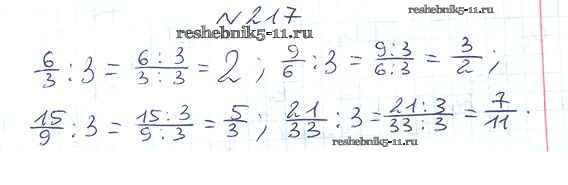 reshebnik5-11.ru
№217
reshebnik5-11.ru
6/3 : 3 = 6 : 3/3 : 3 = 2 ; 9/6 : 3 = 9:3/6:3 = 3/2 ;
15/9 : 3 = 15 : 3/9 : 3 = 5/3 ; 21/33 : 3 = 21 : 3/33 : 3 = 7/11 .
reshebnik5-11.ru